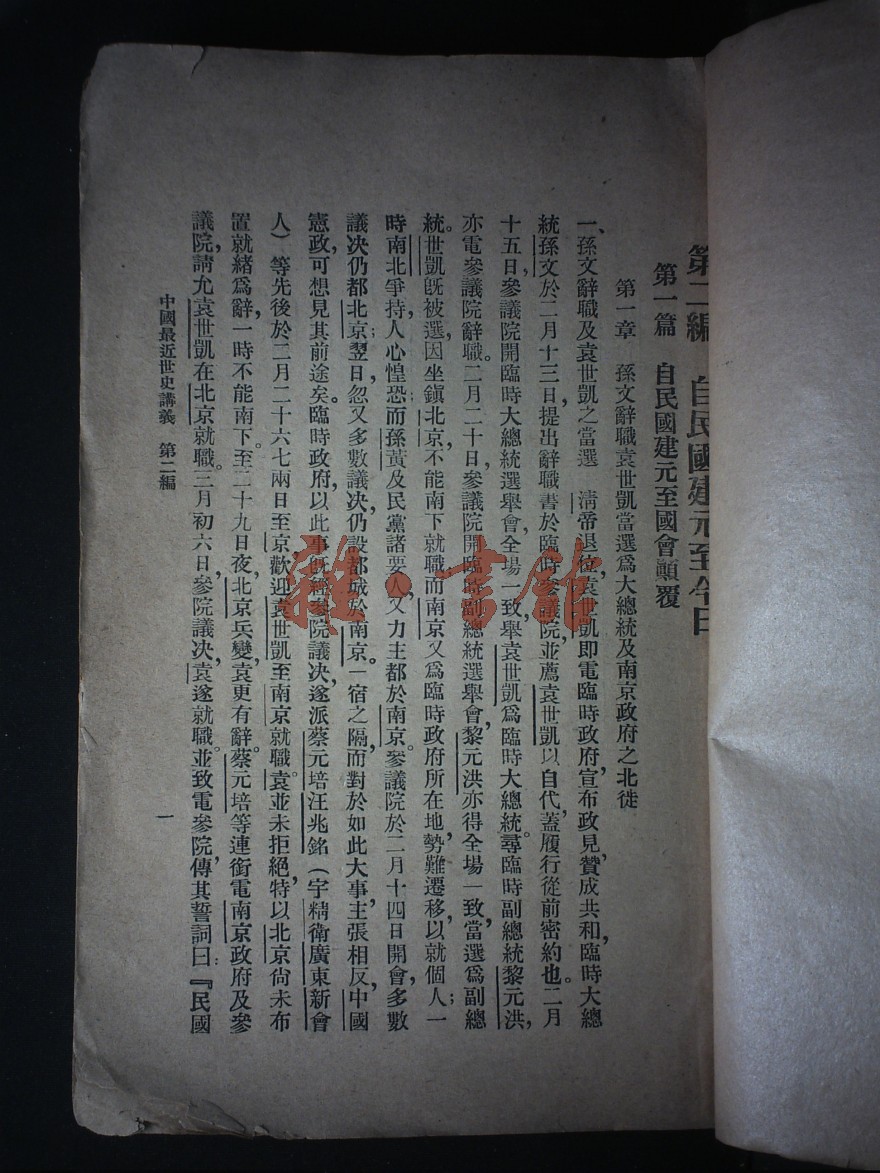 第二編　自民國建元至今日
第一篇　自民國建元至國會顛覆
第一章　孫文辭職袁世凱當選爲大總統及南京政府之北徙
一、孫文辭職及袁世凱之當選　淸帝退位，袁世凱即電臨時政府，宣布政見，贊成共和，臨時大總
統孫文於二月十三日，提出辭職書於臨時參議院，並薦袁世凱以自代，蓋履行從前密約也。二月
十五日，參議院開臨時大總統選舉會，全場一致，舉袁世凱爲臨時大總統。尋臨時副總統黎元洪，
亦電參議院辭職。二月二十日，參議院開臨時副總統選舉會，黎元洪亦得全場一致，當選爲副總
統。世凱旣被選，因坐鎭北京，不能南下就職，而南京又爲臨時政府所在地，勢難遷移，以就個人；一
時南北爭持，人心惶恐，而孫黃及民黨諸要人，又力主都於南京。參議院於二月十四日開會，多數
議決仍都北京；翌日，忽又多數議決，仍設都城於南京。一宿之隔，而對於如此大事，主張相反，中國
憲政，可想見其前途矣。臨時政府，以此事旣經參院議決，遂派蔡元培汪兆銘（字精衛廣東新會
人）等先後於二月二十六七兩日至京，歡迎袁世凱至南京就職。袁並未拒絕，特以北京尙未布
置就緒爲辭，一時不能南下。至二十九日夜，北京兵變，袁更有辭。蔡元培等連銜電南京政府及參
議院，請允袁世凱在北京就職。三月初六日，參院議決，袁遂就職，並致電參院，傳其誓詞曰：『民國
中國最近世史講義　第二編
一
雜·書館